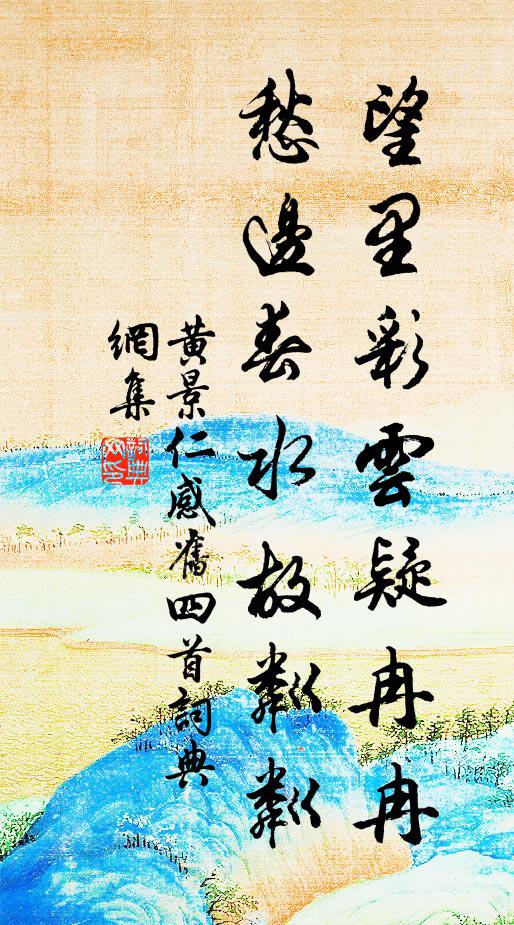 望里彩雲疑冉冉
愁邊春水故粼粼
黃景仁感舊四首詞典
網集